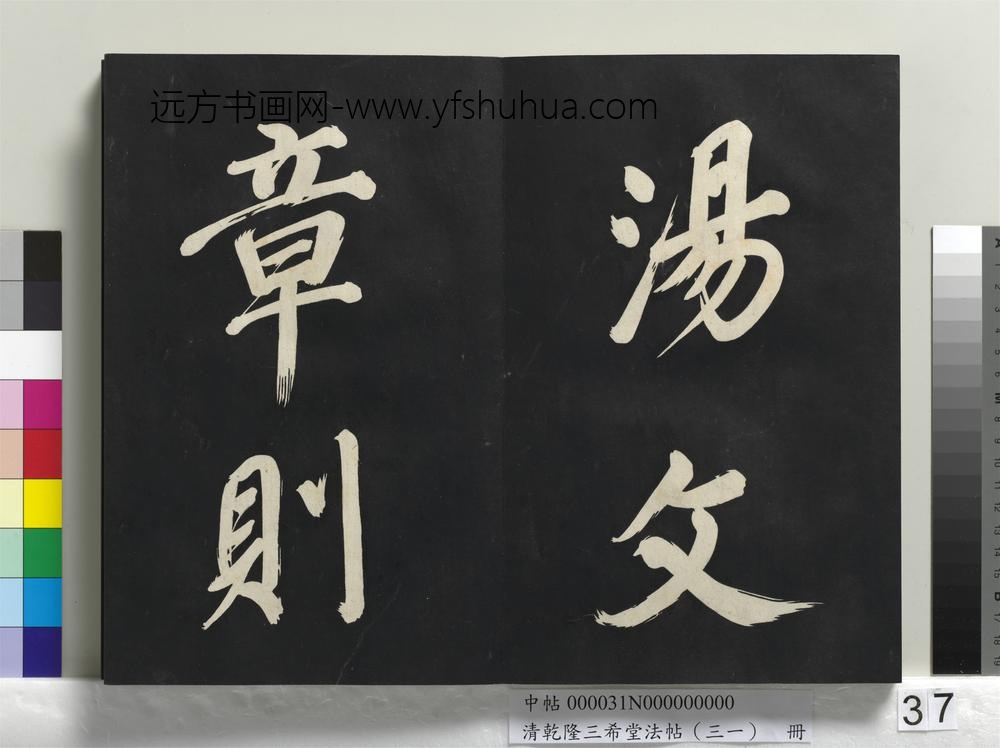 远方书画网-www.yfshuhua.com
湯文
章則
中帖 000031N000000000
清乾隆三希堂法帖（三一） 冊
37